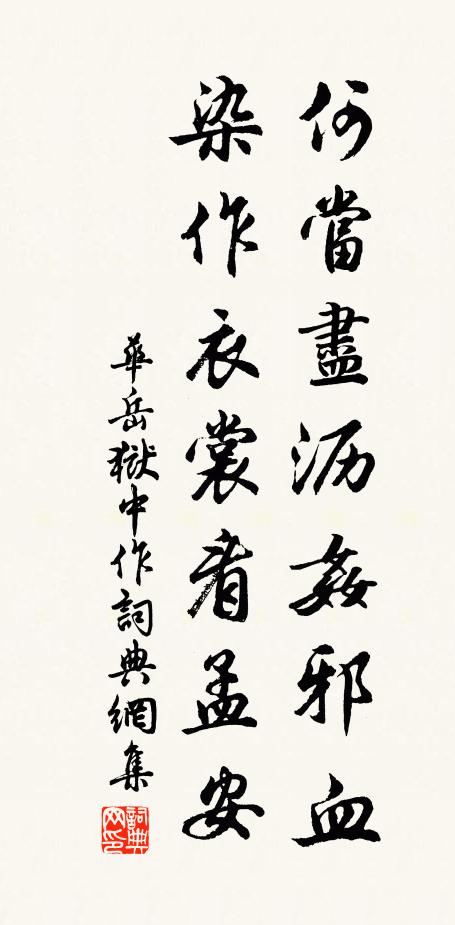 何當盡沥姦邪血
染作衣裳看孟安
華岳獄中作詞典網集
詞典网印